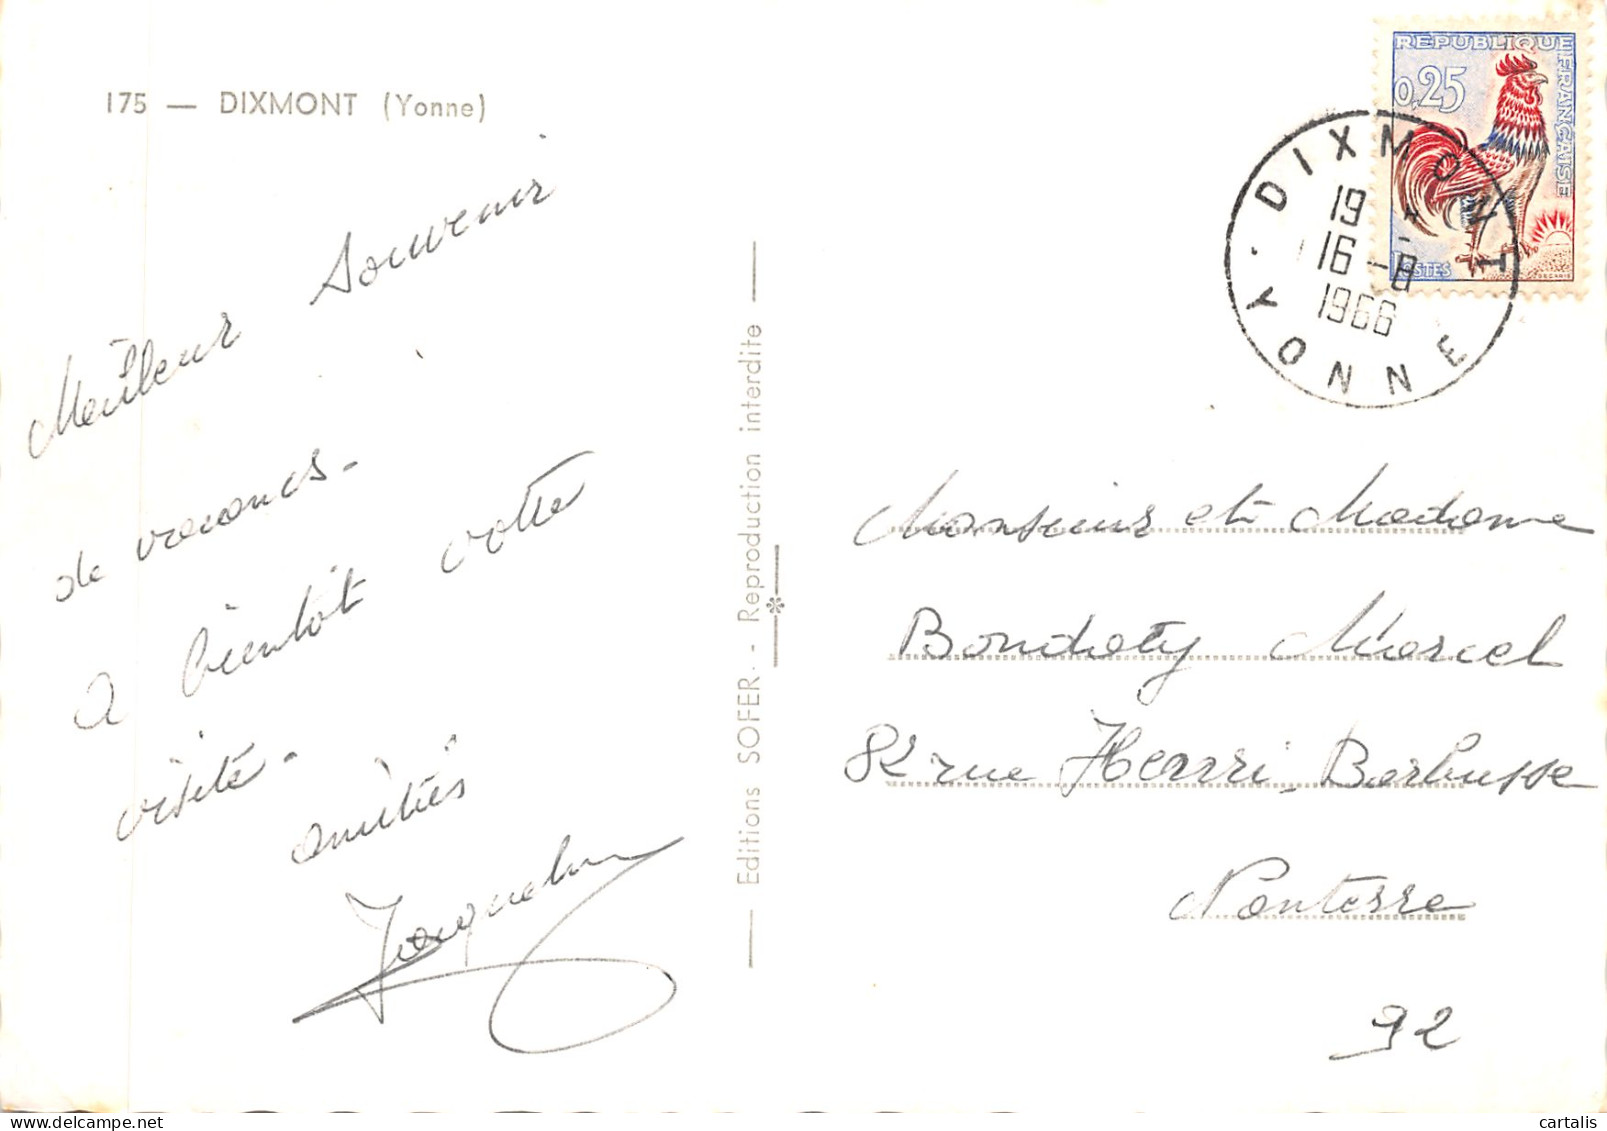 175 — DIXMONT (Yonne)
Meilleur Souvenir
de vacances.
A bientôt votre
visite.
amitiés
Jacqueline
Editions SOFER. - Reproduction interdite
REPUBLIQUE FRANÇAISE
0,25
POSTES
DIXMONT
19 H
16 - 8
1966
YONNE
Monsieur et Madame
Marcel
82 rue Henri Barbusse
Nanterre
92
cartalis